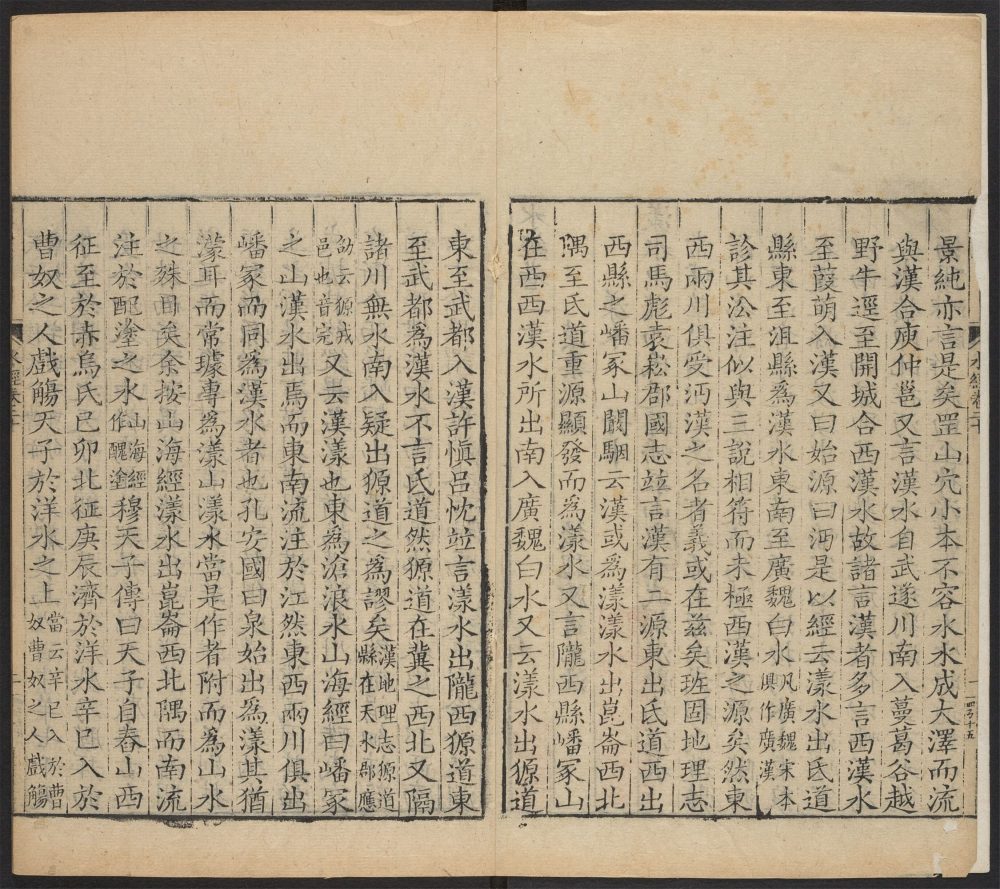 景純亦言是矣罡山穴小本不容水水成大澤而流
與漢合庾仲邕又言漢水自武遂川南入蔓葛谷越
野牛逕至開城合西漢水故諸言漢者多言西漢水
至葭萌入漢又曰始源曰沔是以經云漾水出氐道
縣東至沮縣爲漢水東南至廣魏白水凡廣魏宋本俱作廣漢
診其沿注似與三說相符而未極西漢之源矣然東
西兩川俱受沔漢之名者義或在兹矣班固地理志
司馬彪袁崧郡國志竝言漢有二源東出氐道西出
西縣之嶓冢山闞駰云漢或爲漾漾水出崑崙西北
隅至氐道重源顯發而爲漾水又言隴西縣嶓冢山
在西西漢水所出南入廣魏白水又云漾水出獂道
水經卷二十
東至武都入漢許慎呂忱竝言漾水出隴西獂道東
至武都爲漢水不言氐道然獂道在冀之西北又隔
諸川無水南入疑出獂道之爲謬矣漢地理志獂道縣在天水郡應
劭云獂戎邑也音完又云漢漾也東爲滄浪水山海經曰嶓冢
之山漢水出焉而東南流注於江然東西兩川俱出
嶓冢而同爲漢水者也孔安國曰泉始出爲漾其猶
濛耳而常璩專爲漾山漾水當是作者附而爲山水
之殊目矣余按山海經漾水出崑崙西北隅而南流
注於醜塗之水山海經作醜塗穆天子傳曰天子自舂山西
征至於赤烏氏己卯北征庚辰濟於洋水辛巳入於
曹奴之人戲觴天子於洋水之上當云辛巳入於曹奴曹奴之人戲觴
水經卷二十